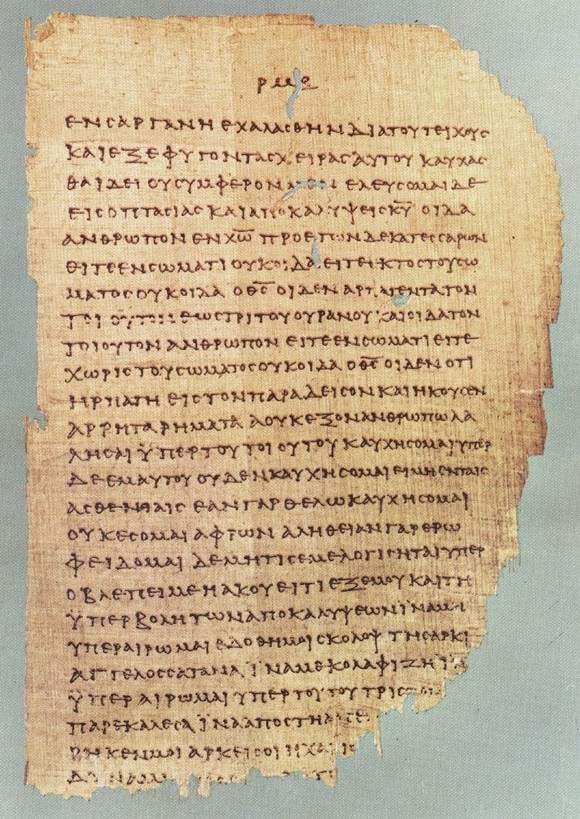 ρμε
ΕΝϹΑΡΓΑΝΗΕΧΑΛΑϹΘΗΝΔΙΑΤΟΥΤΕΙΧΟΥϹ
ΚΑΙΕΞΕΦΥΓΟΝΤΑϹΧΕΙΡΑϹΑΥΤΟΥΚΑΥΧΑϹ
ΘΑΙΔΕΙΟΥϹΥΜΦΕΡΟΝΜΕΝΕΛΕΥϹΟΜΑΙΔΕ
ΕΙϹΟΠΤΑϹΙΑϹΚΑΙΑΠΟΚΑΛΥΨΕΙϹΚ̅Υ̅ΟΙΔΑ
ΑΝΘΡΩΠΟΝΕΝΧ̅Ω̅ΠΡΟΕΤΩΝΔΕΚΑΤΕϹϹΑΡΩΝ
ΕΙΤΕΕΝϹΩΜΑΤΙΟΥΚΟΙΔΑΕΙΤΕΕΚΤΟϹΤΟΥϹΩ
ΜΑΤΟϹΟΥΚΟΙΔΑΟΘ̅Ϲ̅ΟΙΔΕΝΑΡΠΑΓΕΝΤΑΤΟΝ
ΤΟΙΟΥΤΟΝΕΩϹΤΡΙΤΟΥΟΥΡΑΝΟΥΚΑΙΟΙΔΑΤΟΝ
ΤΟΙΟΥΤΟΝΑΝΘΡΩΠΟΝΕΙΤΕΕΝϹΩΜΑΤΙΕΙΤΕ
ΧΩΡΙϹΤΟΥϹΩΜΑΤΟϹΟΥΚΟΙΔΑΟΘ̅Ϲ̅ΟΙΔΕΝΟΤΙ
ΗΡΠΑΓΗΕΙϹΤΟΝΠΑΡΑΔΕΙϹΟΝΚΑΙΗΚΟΥϹΕΝ
ΑΡΡΗΤΑΡΗΜΑΤΑΑΟΥΚΕΞΟΝΑΝΘΡΩΠΩΛΑ
ΛΗϹΑΙΫΠΕΡΤΟΥΤΟΙΟΥΤΟΥΚΑΥΧΗϹΟΜΑΙΥΠΕΡ
ΔΕΕΜΑΥΤΟΥΟΥΔΕΝΚΑΥΧΗϹΟΜΑΙΕΙΜΗΕΝΤΑΙϹ
ΑϹΘΕΝΕΙΑΙϹΕΑΝΓΑΡΘΕΛΩΚΑΥΧΗϹΟΜΑΙ
ΟΥΚΕϹΟΜΑΙΑΦΡΩΝΑΛΗΘΕΙΑΝΓΑΡΕΡΩ
ΦΕΙΔΟΜΑΙΔΕΜΗΤΙϹΕΜΕΛΟΓΙϹΗΤΑΙΥΠΕΡ
ΟΒΛΕΠΕΙΜΕΗΑΚΟΥΕΙΤΙΕΞΕΜΟΥΚΑΙΤΗ
ΫΠΕΡΒΟΛΗΤΩΝΑΠΟΚΑΛΥΨΕΩΝΪΝΑΜΗ
ΥΠΕΡΑΙΡΩΜΑΙΕΔΟΘΗΜΟΙϹΚΟΛΟΨΤΗϹΑΡΚΙ
ΑΓΓΕΛΟϹϹΑΤΑΝΑΪΝΑΜΕΚΟΛΑΦΙΖΗΪΝ
ΫΠΕΡΑΙΡΩΜΑΙΥΠΕΡΤΟΥΤΟΥΤΡΙϹ
ΠΑΡΕΚΑΛΕϹΑΪΝΑΑΠΟϹΤΗΑΠΕ
ΡΗΚΕΝΜΟΙΑΡΚΕΙϹΟΙΗΧΑΡΙϹ
ΔΥΝΑΜΙ